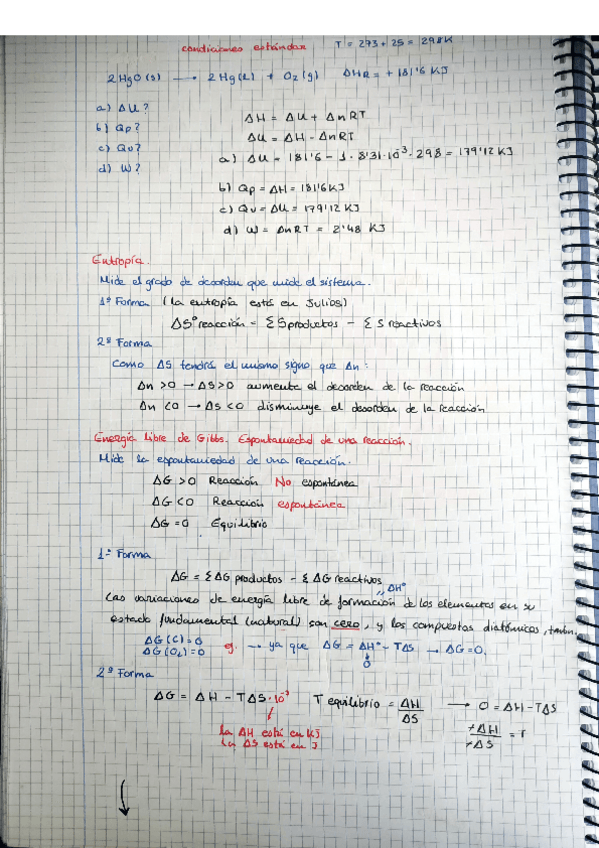 condiciones estándar T = 273 + 25 = 298 K
2 HgO (s) → 2 Hg (l) + O₂ (g) ΔHR = + 181'6 KJ
a) ΔU?
b) Qp?
c) Qv?
d) W?
ΔH = ΔU + Δn RT
ΔU = ΔH - Δn RT
a) ΔU = 181'6 - 1 · 8'31 · 10⁻³ · 298 = 179'12 KJ
b) Qp = ΔH = 181'6 KJ
c) Qv = ΔU = 179'12 KJ
d) W = Δn RT = 2'48 KJ
Entropía.
Mide el grado de desorden que mide el sistema.
1ª Forma (la entropía está en Julios)
ΔS° reacción = Σ S productos - Σ S reactivos
2ª Forma
Como ΔS tendrá el mismo signo que Δn :
Δn > 0 → ΔS > 0 aumenta el desorden de la reacción
Δn < 0 → ΔS < 0 disminuye el desorden de la reacción
Energía libre de Gibbs. Espontaniedad de una reacción.
Mide la espontaniedad de una reacción.
ΔG > 0 Reacción No espontánea
ΔG < 0 Reacción espontánea
ΔG = 0 Equilibrio
1ª Forma
ΔG = Σ ΔG productos - Σ ΔG reactivos
,, ΔH°
Las variaciones de energía libre de formación de los elementos en su
estado fundamental (natural) son cero, y los compuestos diatómicos,
ΔG (C) = 0
ΔG (O₂) = 0
ej. → ya que ΔG = ΔH° - TΔS → ΔG = 0.
0
2ª Forma
ΔG = ΔH - TΔS · 10⁻³ T equilibrio = ΔH / ΔS → 0 = ΔH - TΔS
la ΔH está en KJ
la ΔS está en J
+ΔH / +ΔS = T